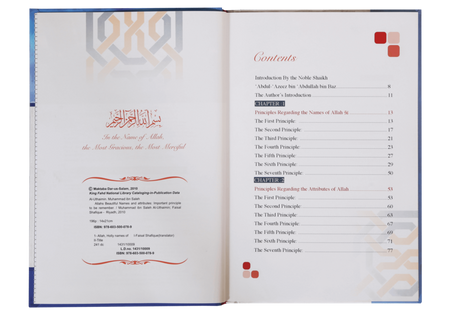 بسم الله الرحمن الرحيم
In the Name of Allah,
the Most Gracious, the Most Merciful
© Maktaba Dar-us-Salam, 2010
King Fahd National Library Cataloging-in-Publication Data
Al-Uthaimin, Muhammad bin Saleh
Allah's Beautiful Names and attributes: Important principle
to be remember. / Muhammad bin Saleh Al-Uthaimin; Faisal
Shafique - Riyadh, 2010
ISBN:
1- Allah, Holy names of
II-Title
Contents
Introduction By the Noble Shaikh
'Abdul-'Azeez bin 'Abdullah bin Baz 8
The Author's Introduction 11
CHAPTER 1
Principles Regarding the Names of Allah 13
The First Principle 13
The Second Principle 17
The Third Principle 21
The Fourth Principle 23
The Fifth Principle 27
The Sixth Principle 29
The Seventh Principle 30
CHAPTER 2
Principles Regarding the Attributes of Allah 53
The First Principle 53
The Second Principle 60
The Third Principle 63
The Fourth Principle 67
The Fifth Principle 69
The Sixth Principle 71
The Seventh Principle 77